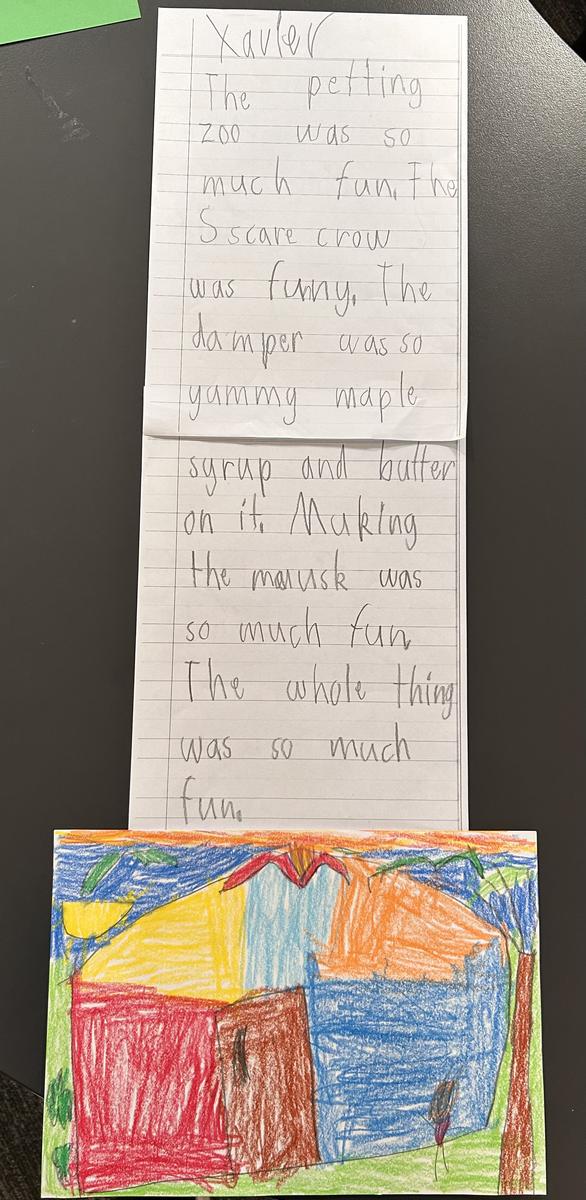 Xavier
The petting
zoo was so
much fun. The
Sscare crow
was funny. The
damper was so
yammy maple
syrup and butter
on it. Making
the mausk was
so much fun
The whole thing
was so much
fun.